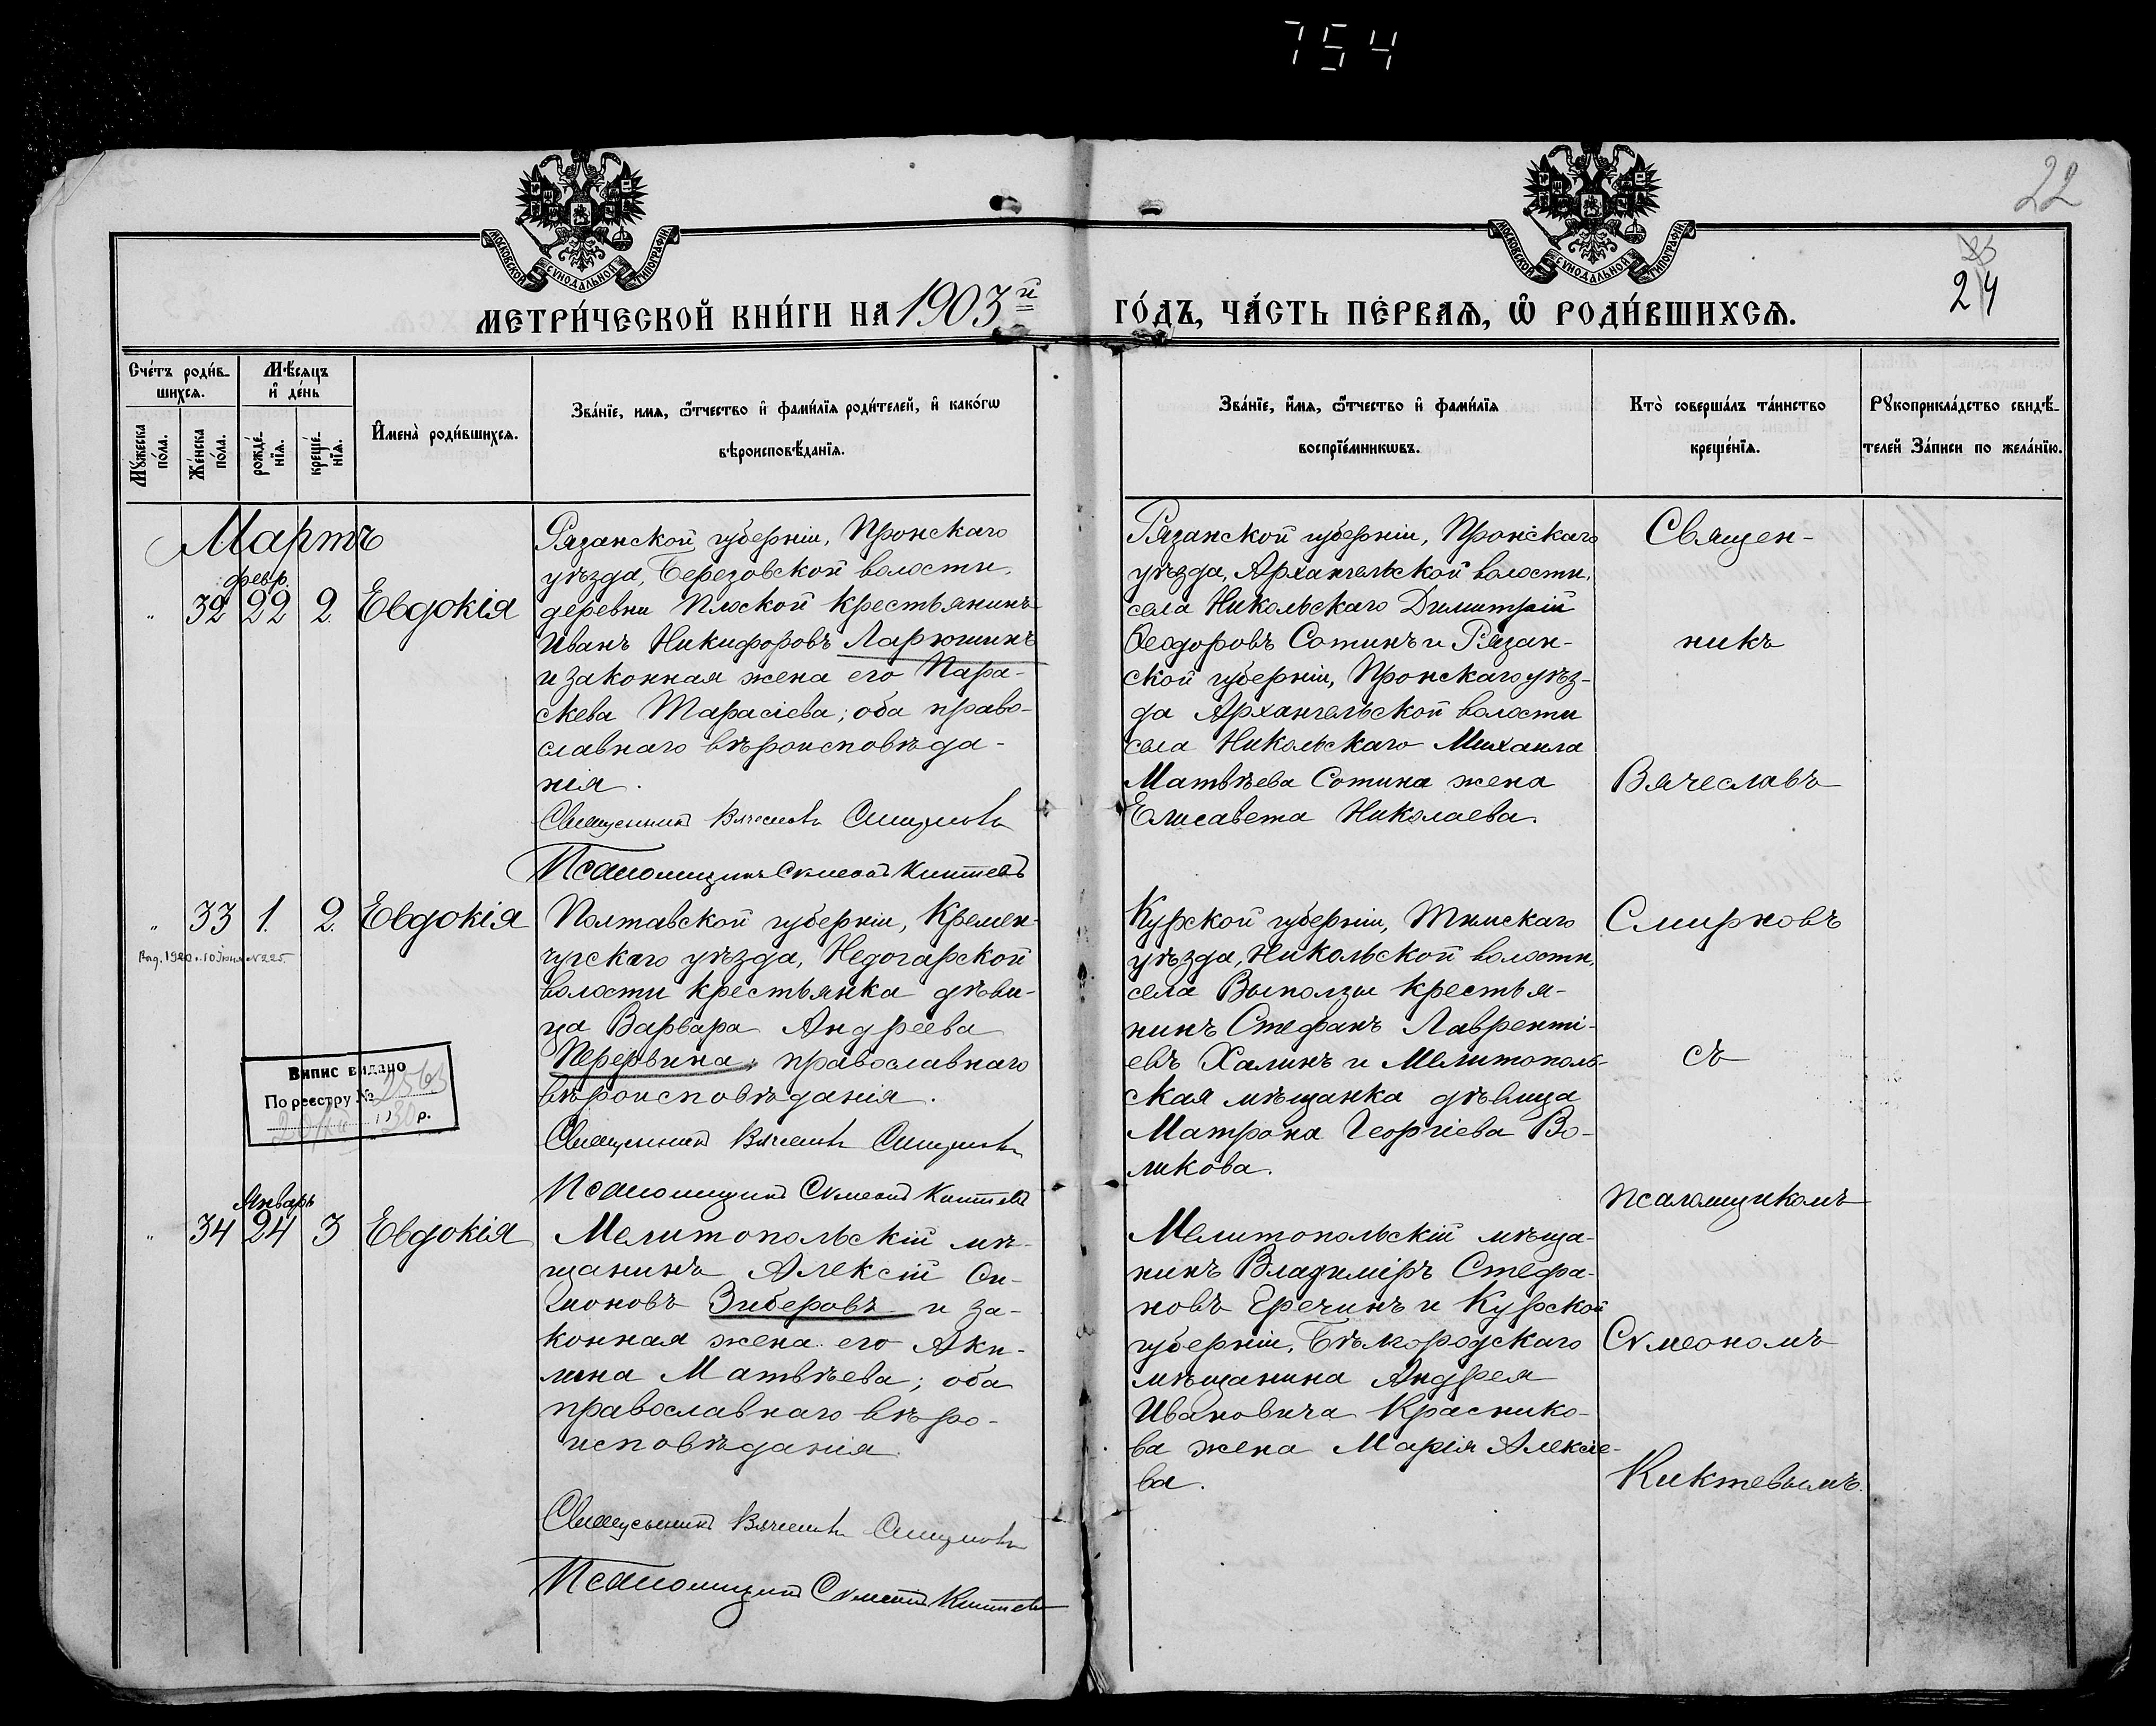 754
22
МОСКОВСКОЙ СѴНОДАЛЬНОЙ ТИПОГРАФІИ
МОСКОВСКОЙ СѴНОДАЛЬНОЙ ТИПОГРАФІИ
24
МЕТРИ́ЧЕСКОЙ КНИ́ГИ НА 1903й
ГО́ДЪ, ЧА́СТЬ ПЕ́РВАѦ, Ѡ҆ РОДИ́ВШИХСѦ.
Сче́тъ роди́в-
шихсѧ.
Мѣ́сѧцъ
и҆ де́нь
Мꙋ́жеска
по́ла.
Же́нска
по́ла.
рожде́-
нїѧ.
креще́-
нїѧ.
И҆мена̀ роди́вшихсѧ.
Зва́нїе, имѧ, ѻ҆́тчество и҆ фами́лїѧ роди́телей, и҆ како́гѡ
вѣроисповѣ́данїѧ.
Зва́нїе, и҆́мѧ, ѻ҆́тчество и҆ фами́лїѧ
воспрїе́мникѡвъ.
Кто̀ соверша́лъ та́инство
креще́нїѧ.
Рꙋкоприкла́дство свидѣ́-
телей За́писи по жела́нїю.
Мартъ
февр.
" 32 22 2. Евдокія
Рязанской губерніи, Пронскаго
уѣзда, Березовской волости,
деревни Плоской крестьянинъ
Иванъ Никифоровъ Ларюшинъ
и законная жена его Пара-
скева Тарасіева; оба право-
славнаго вѣроисповѣда-
нія.
Священникъ Вячеславъ Смирновъ
Псаломщикъ Сѵмеонъ Киктевъ
Рязанской губерніи, Пронскаго
уѣзда, Архангельской волости,
села Никольскаго Димитрій
Ѳеодоровъ Сотинъ и Рязан-
ской губерніи, Пронскаго уѣз-
да Архангельской волости
села Никольскаго Михаила
Матвѣева Сотина жена
Елисавета Николаева.
Священ-
никъ
Вячеславъ
" 33 1. 2. Евдокія
Выд. 1920 г. 10 Іюня № 225
Випис видано
По реєстру №
30 р.
Полтавской губерніи, Кремен-
чугскаго уѣзда, Недогарской
волости крестьянка дѣви-
ца Варвара Андреева
Перервина, православнаго
вѣроисповѣданія.
Священникъ Вячеславъ Смирновъ
Псаломщикъ Сѵмеонъ Киктевъ
Курской губерніи, Тимскаго
уѣзда, Никольской волости,
села Выползы крестья-
нинъ Стефанъ Лавренті-
евъ Халинъ и Мелитополь-
ская мѣщанка дѣвица
Матрона Георгіева Во-
ликова.
Смирновъ
съ
псаломщикомъ
Январь
" 34 24 3 Евдокія
Мелитопольскій мѣ-
щанинъ Алексій Си-
моновъ Зиберовъ и за-
конная жена его Аки-
лина Матвѣева; оба
православнаго вѣро-
исповѣданія.
Священникъ Вячеславъ Смирновъ
Псаломщикъ Сѵмеонъ Киктевъ
Мелитопольскій мѣща-
нинъ Владиміръ Стефа-
новъ Еречинъ и Курской
губерніи, Бѣлгородскаго
мѣщанина Андрея
Ивановича Краснико-
ва жена Марія Алексѣе-
ва.
Сѵмеономъ
Киктевымъ.